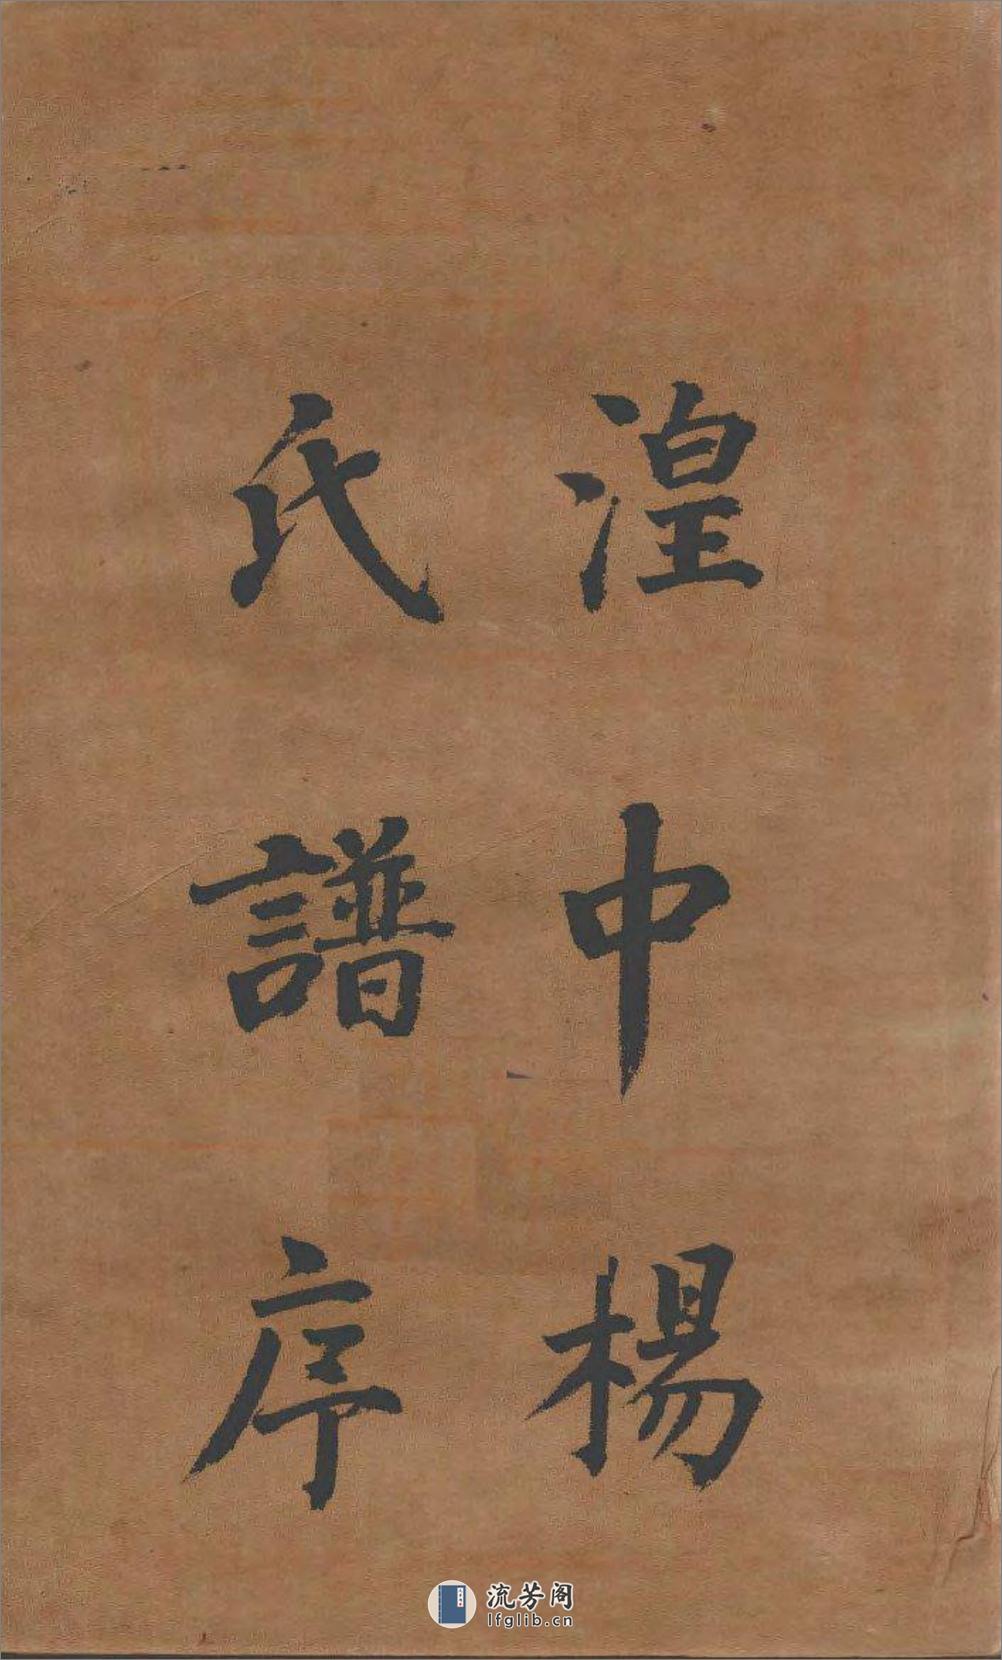 湟中楊
氏譜序
流芳阁
lfglib.cn